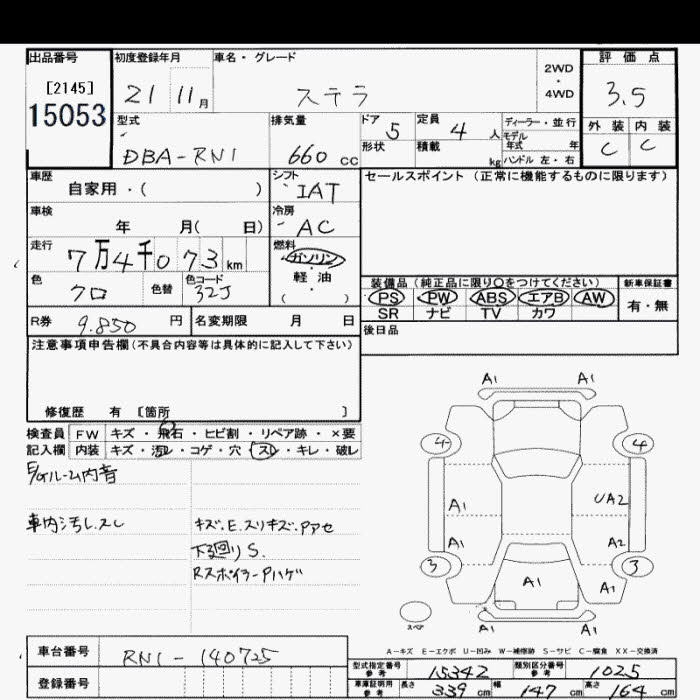 出品番号 初度登録年月 車名・グレード 評価点
[2145] 2WD
15053 21 11月 ステラ ・ 3.5
4WD
型式 排気量 ドア 5 定員 4 人 ディーラー・並行 外装 内装
モデル
年式 年 C C
DBA-RN1 660 cc 形状 積載 kg ハンドル 左・右
車歴 シフト セールスポイント(正常に機能するものに限ります)
自家用・( ) IAT
車検 冷房
年 月( 日) AC
走行 燃料
7万4千073 km ガソリン
色 色替 色コード 軽油 装備品(純正品に限り○をつけてください) 新車保証書
クロ 32J ( ・ ) PS PW ABS エアB AW 有・無
SR ナビ TV カワ
R券 9.850 円 名変期限 月 日 後日品
注意事項申告欄(不具合内容等は具体的に記入して下さい)
修復歴 有 〔箇所 〕
検査員 FW キズ・飛石・ヒビ割・リペア跡・×要
記入欄 内装 キズ・汚レ・コゲ・穴・スレ・キレ・破レ
E/gルーム内音
車内汚レ.スレ キズ.E.スリキズ.Pアセ
下廻りS.
RスポイラーPハゲ
A1 A1
4 4
A1 UA2
A1 A2
3 A1 A1 3
スペア A1 A1
A-キズ E-エクボ U-凹み W-補修跡 S-サビ C-腐食 XX-交換済
車台番号 RN1-140725 型式指定番号 参考 15342 類別区分番号 参考 1025
登録番号 車庫証明用 参考 長さ 339 cm 幅 147 cm 高さ 164 cm